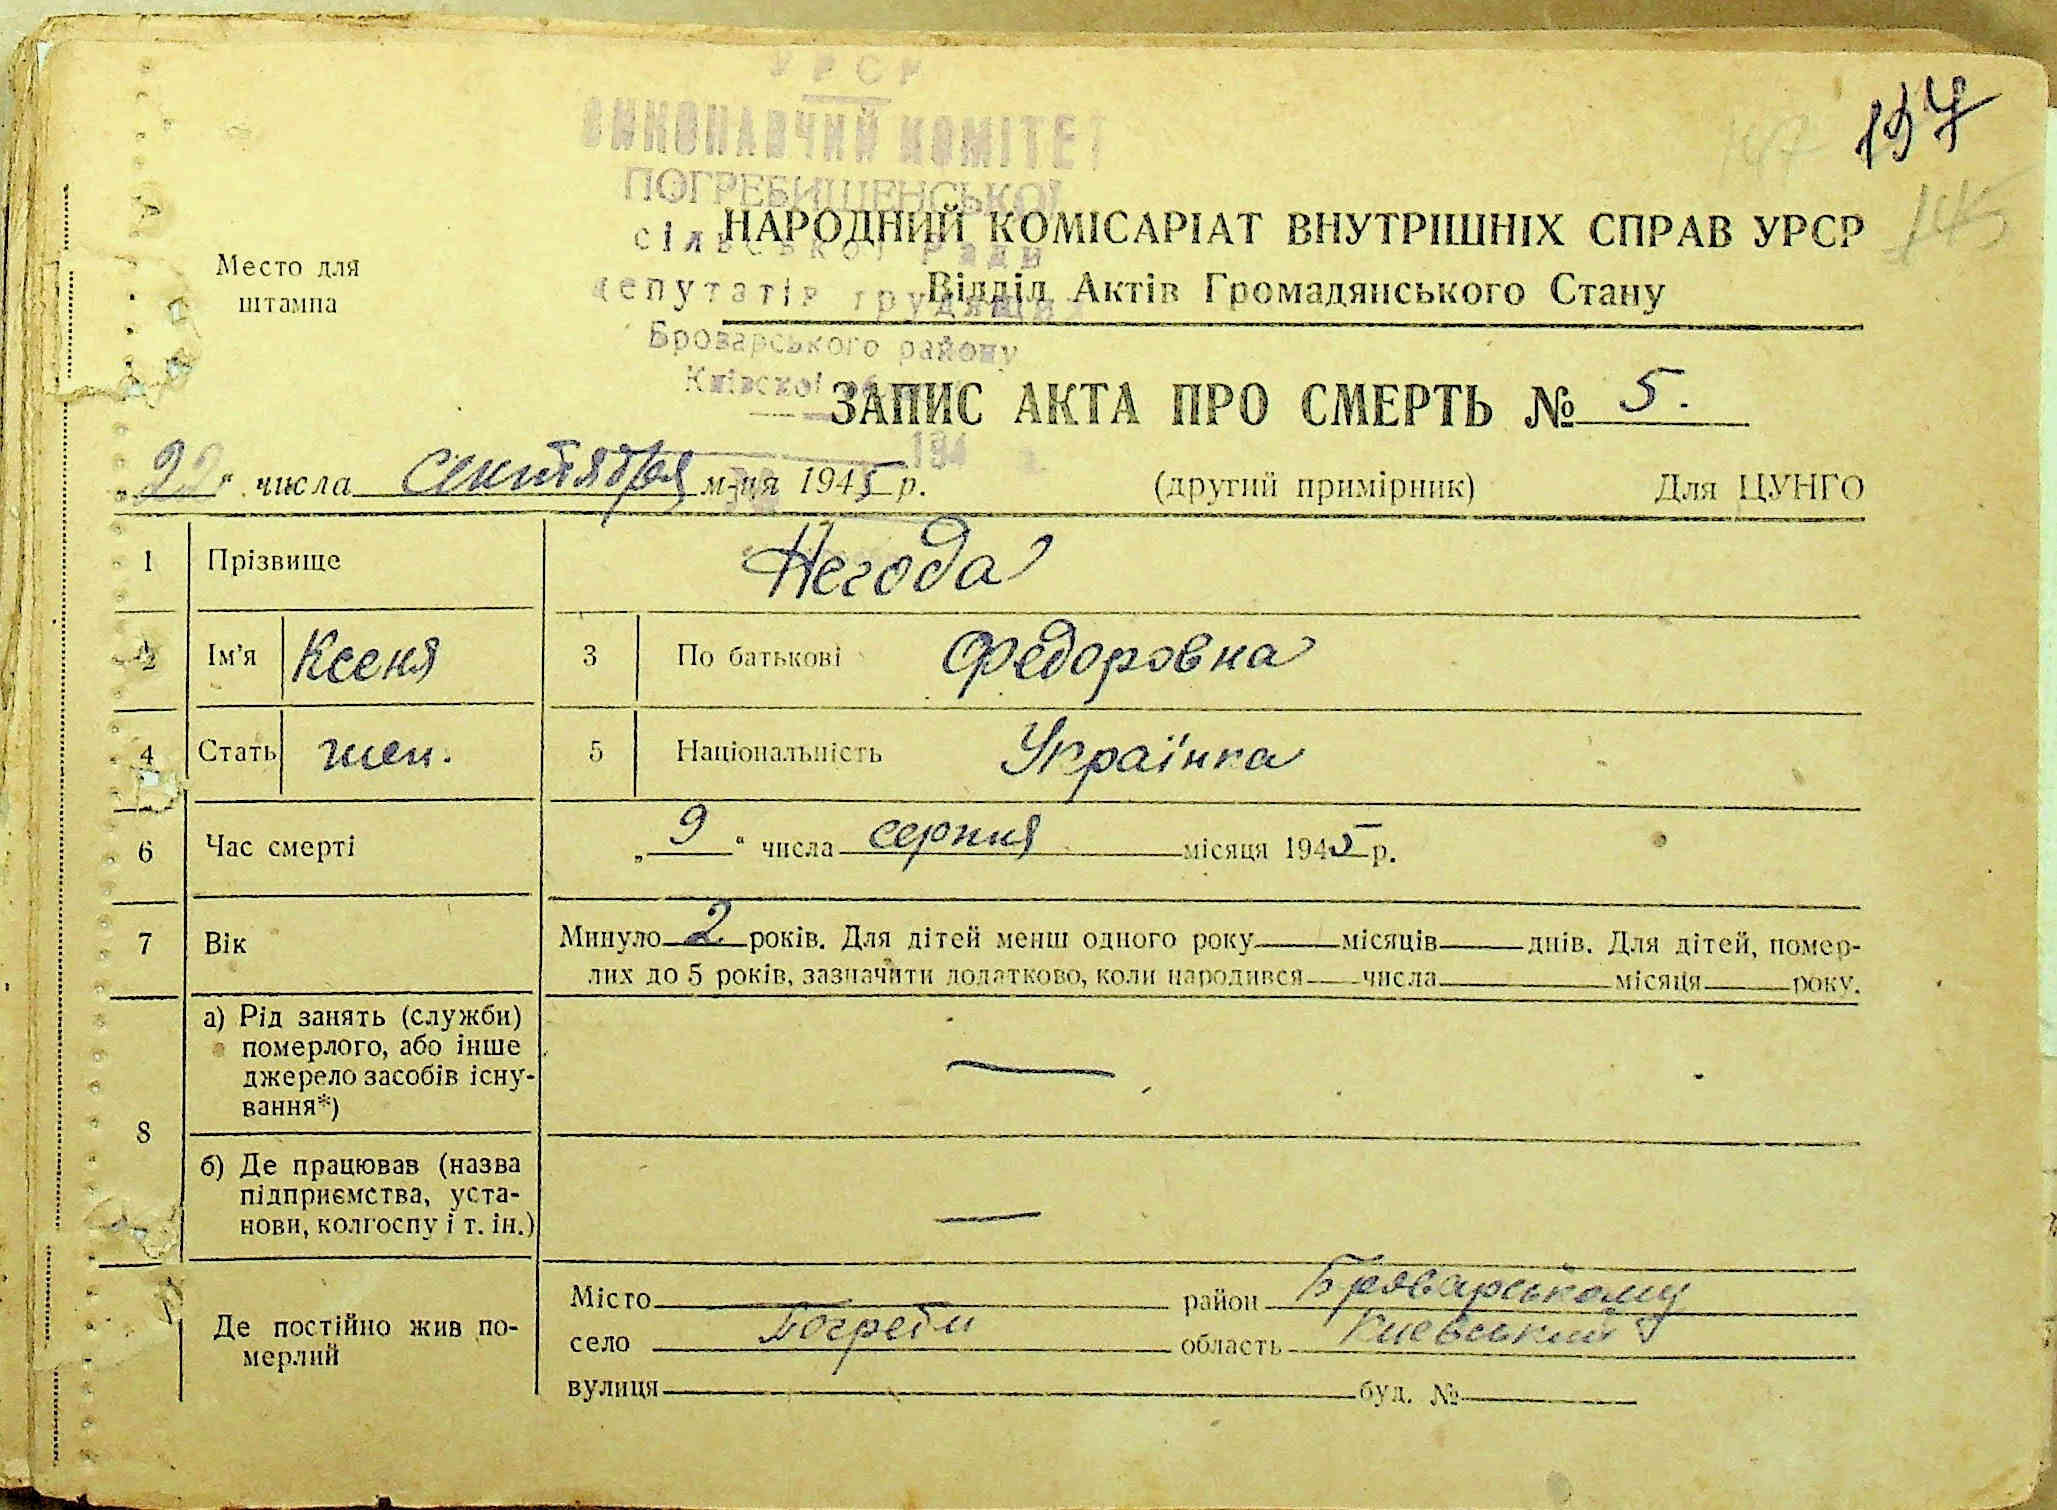 УРСР
197
147
ВИКОНАВЧИЙ КОМІТЕТ
ПОГРЕБИЩЕНСЬКОЇ
145
НАРОДНИЙ КОМІСАРІАТ ВНУТРІШНІХ СПРАВ УРСР
сільської Ради
Место для
штампа
депутатів трудящих
Відділ Актів Громадянського Стану
Броварського району
Київскої
ЗАПИС АКТА ПРО СМЕРТЬ № 5.
194
„22“ числа сентября м-ця 1945 р. (другий примірник) Для ЦУНГО
1 Прізвище Негода
2 Ім'я Ксеня 3 По батькові Федоровна
4 Стать жен. 5 Національність Українка
6 Час смерті „9“ числа серпня місяця 1945 р.
7 Вік Минуло 2 років. Для дітей менш одного року місяців днів. Для дітей, помер-
лих до 5 років, зазначити додатково, коли народився числа місяця року.
8 а) Рід занять (служби)
померлого, або інше
джерело засобів існу-
вання*) —
б) Де працював (назва
підприємства, уста-
нови, колгоспу і т. ін.) —
Де постійно жив по-
мерлий
Місто район Броварському
село Погреби область Киевський
вулиця буд. №